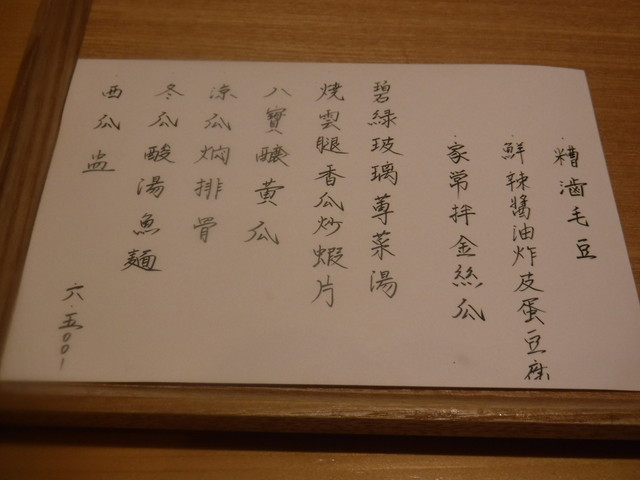 糟滷毛豆
鮮辣醬油炸皮蛋豆腐
家常拌金絲瓜
碧綠玻璃蓴菜湯
燒雲腿香瓜炒蝦片
八寶釀黃瓜
涼瓜焖排骨
冬瓜酸湯魚麵
西瓜盅
六.五00l